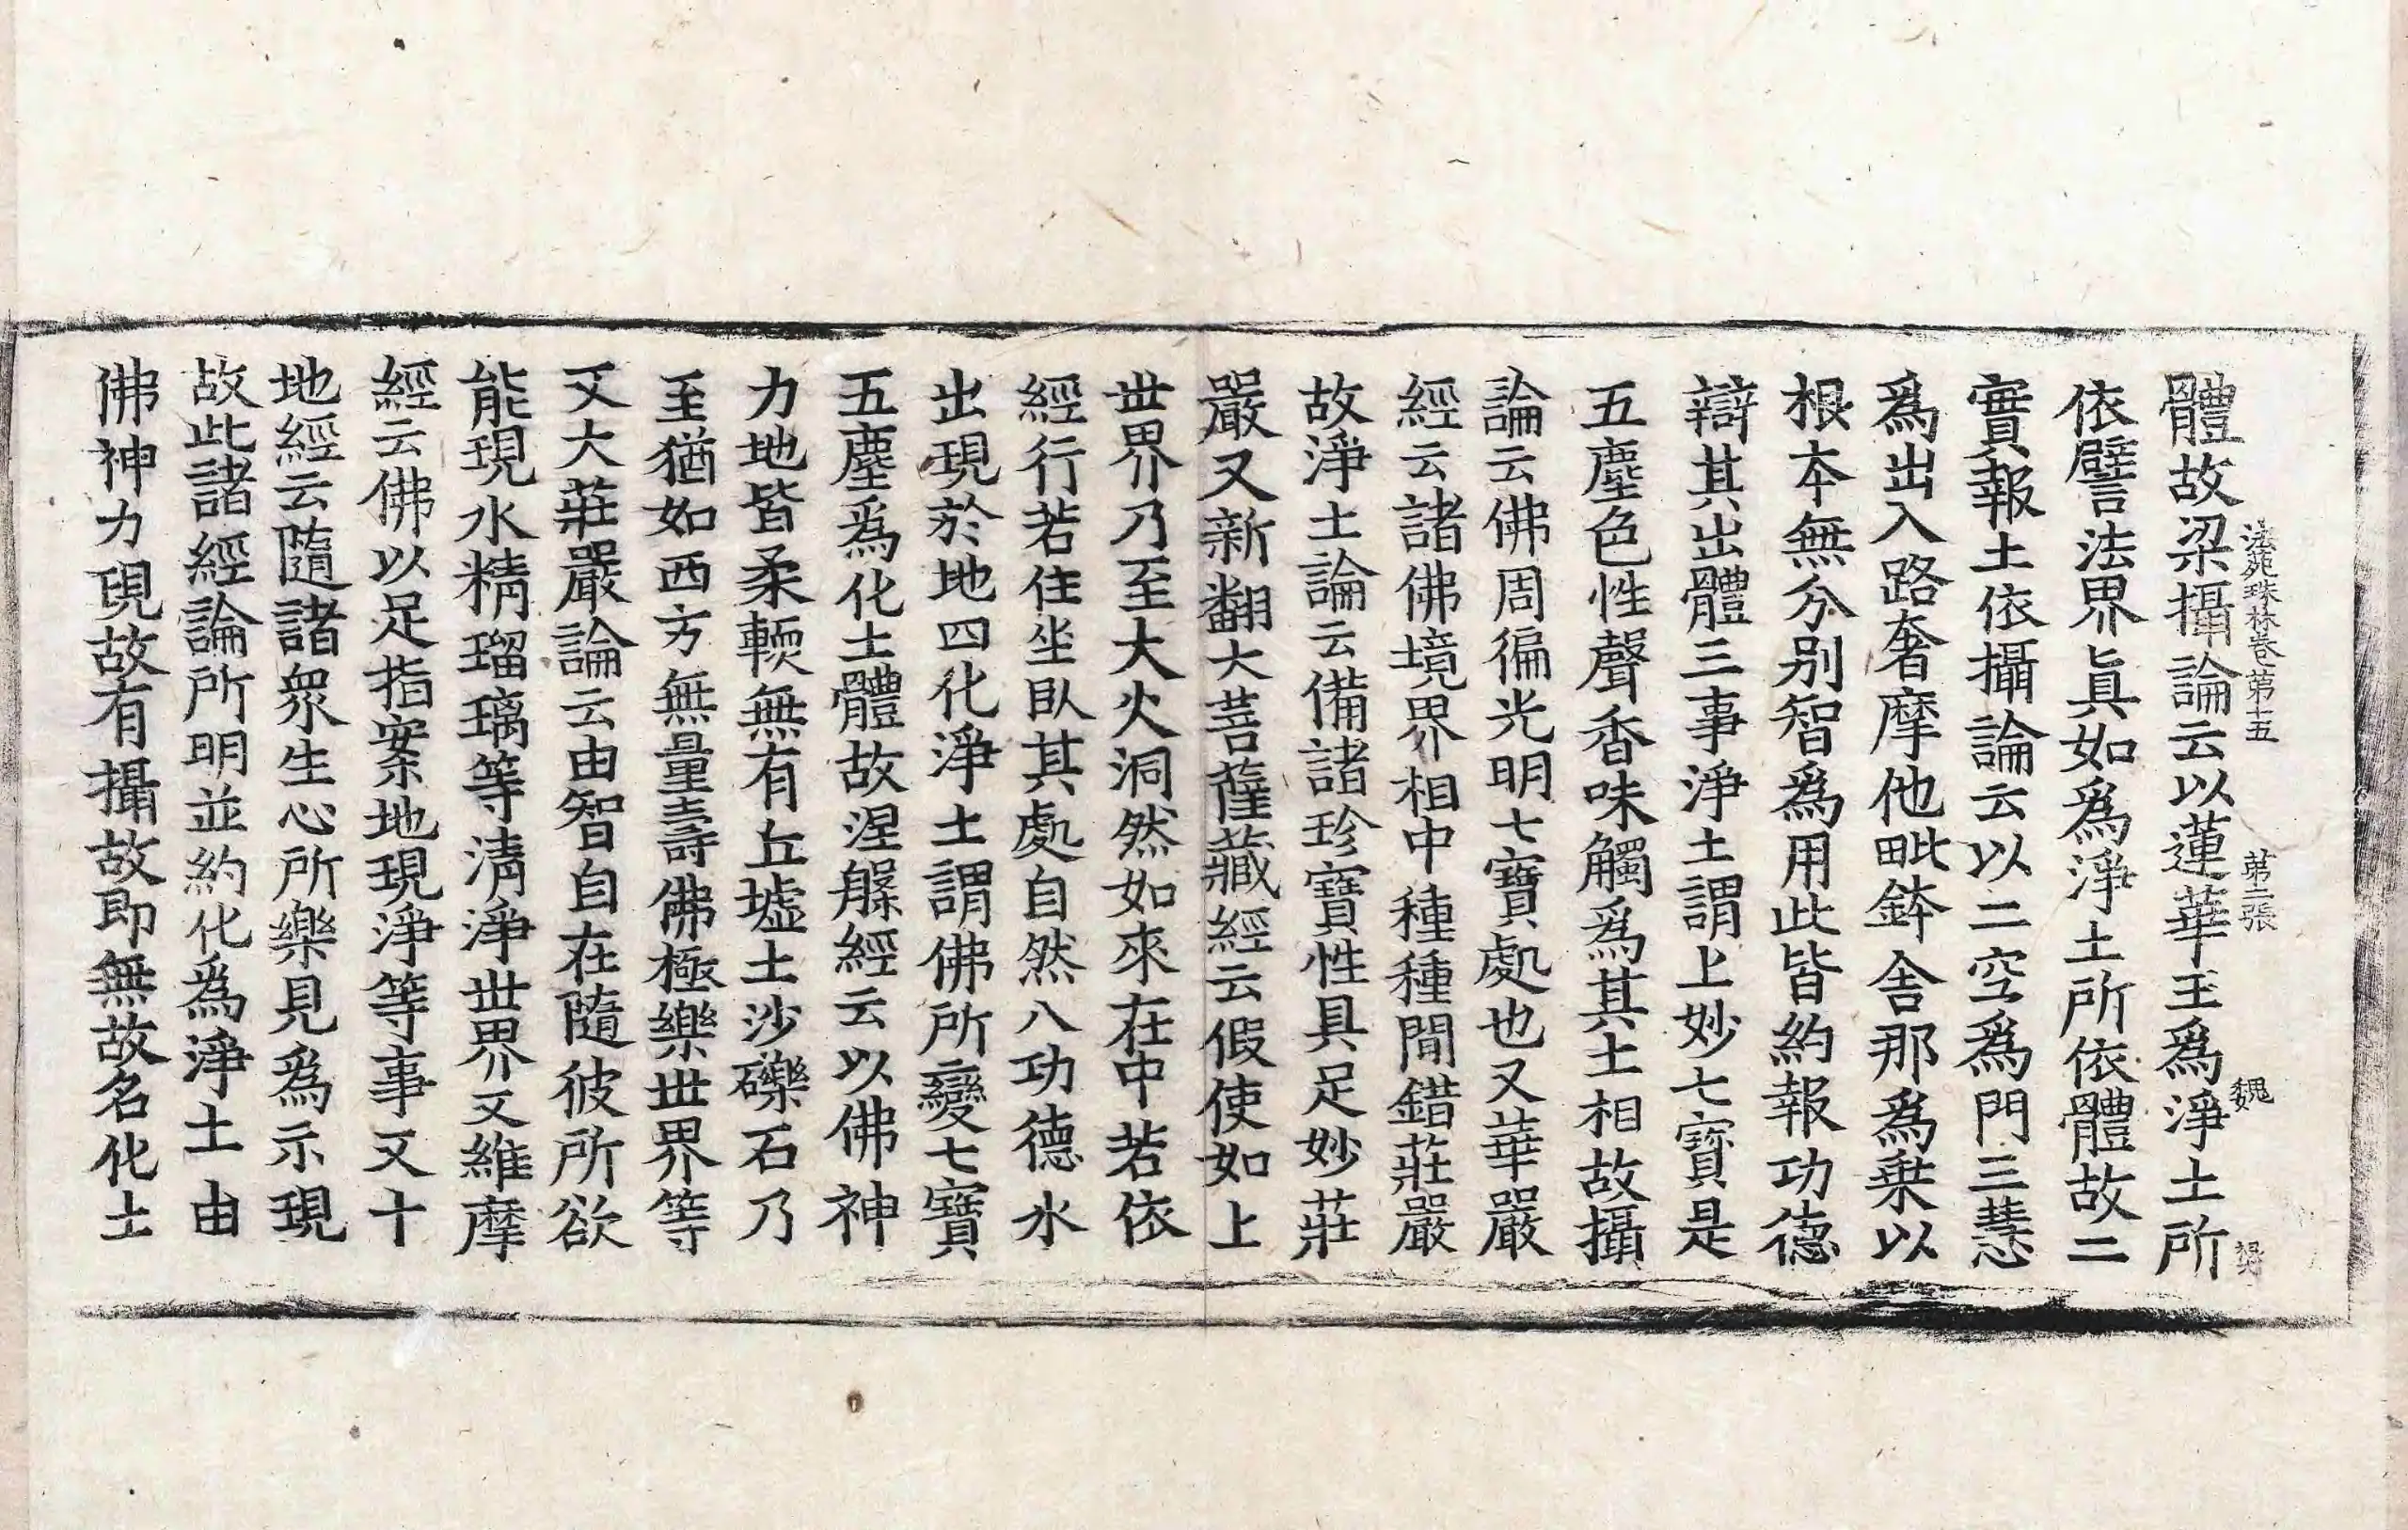 體故梁攝論云以蓮華王爲淨土所
法苑珠林卷第十五 第二張 魏
依譬法界眞如爲淨土所依體故二
實報土依攝論云以二空爲門三慧
爲出入路奢摩他毗鉢舍那爲乗以
根本無分别智爲用此皆約報功德
辯其出體三事淨土謂上妙七寶是
五塵色性聲香味觸爲其土相故攝
論云佛周徧光明七寶處也又華嚴
經云諸佛境界相中種種間錯莊嚴
故淨土論云備諸珍寶性具足妙莊
嚴又新翻大菩薩藏經云假使如上
世界乃至大火洞然如來在中若依
經行若住坐臥其處自然八功德水
出現於地四化淨土謂佛所變七寶
五塵爲化土體故涅槃經云以佛神
力地皆柔輭無有丘墟土沙礫石乃
至猶如西方無量壽佛極樂世界等
又大莊嚴論云由智自在隨彼所欲
能現水精瑠璃等清淨世界又維摩
經云佛以足指案地現淨等事又十
地經云隨諸衆生心所樂見爲示現
故此諸經論所明並約化爲淨土由
佛神力現故有攝故即無故名化土